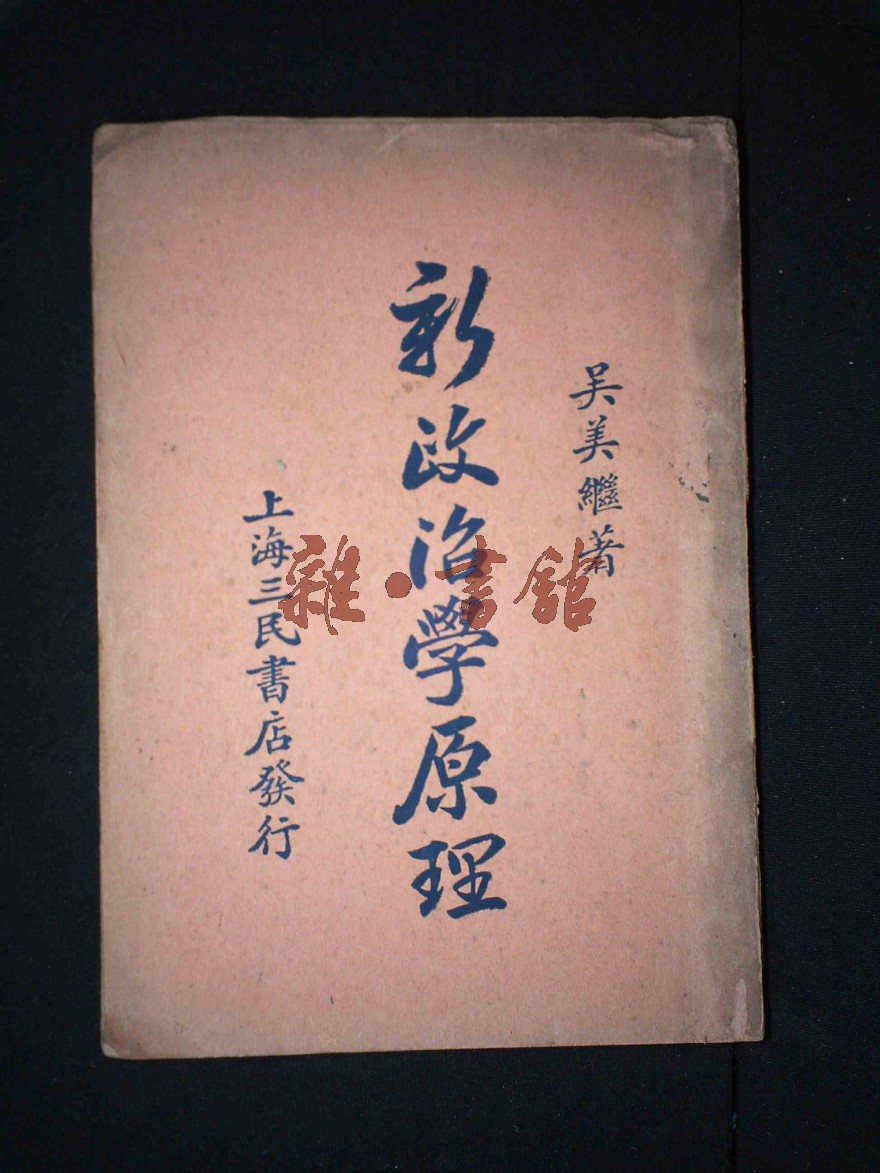 吴美繼著
新政治學原理
上海三民書店發行
雜·書館